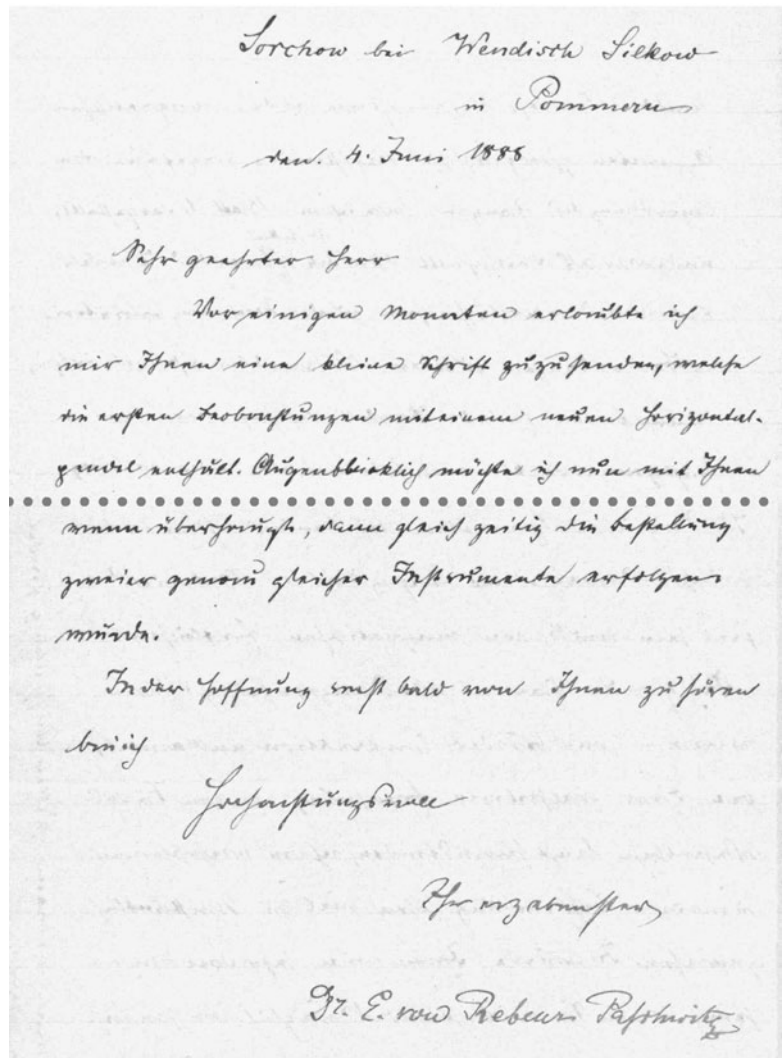 Sorchow bei Wendisch Silkow
in Pommern
den. 4. Juni 1888
Sehr geehrter Herr
Vor einigen Monaten erlaubte ich
mir Ihnen eine kleine Schrift zuzusenden, welche
die ersten Beobachtungen mit einem neuen Horizontal-
pendel enthält. Augenblicklich möchte ich nun mit Ihnen
wenn überhaupt, dann gleichzeitig die Bestellung
zweier genau gleicher Instrumente erfolgen
würde.
In der Hoffnung recht bald von Ihnen zu hören
bin ich
Hochachtungsvoll
Ihr ergebenster
Dr. E. von Rebeur Paschwitz